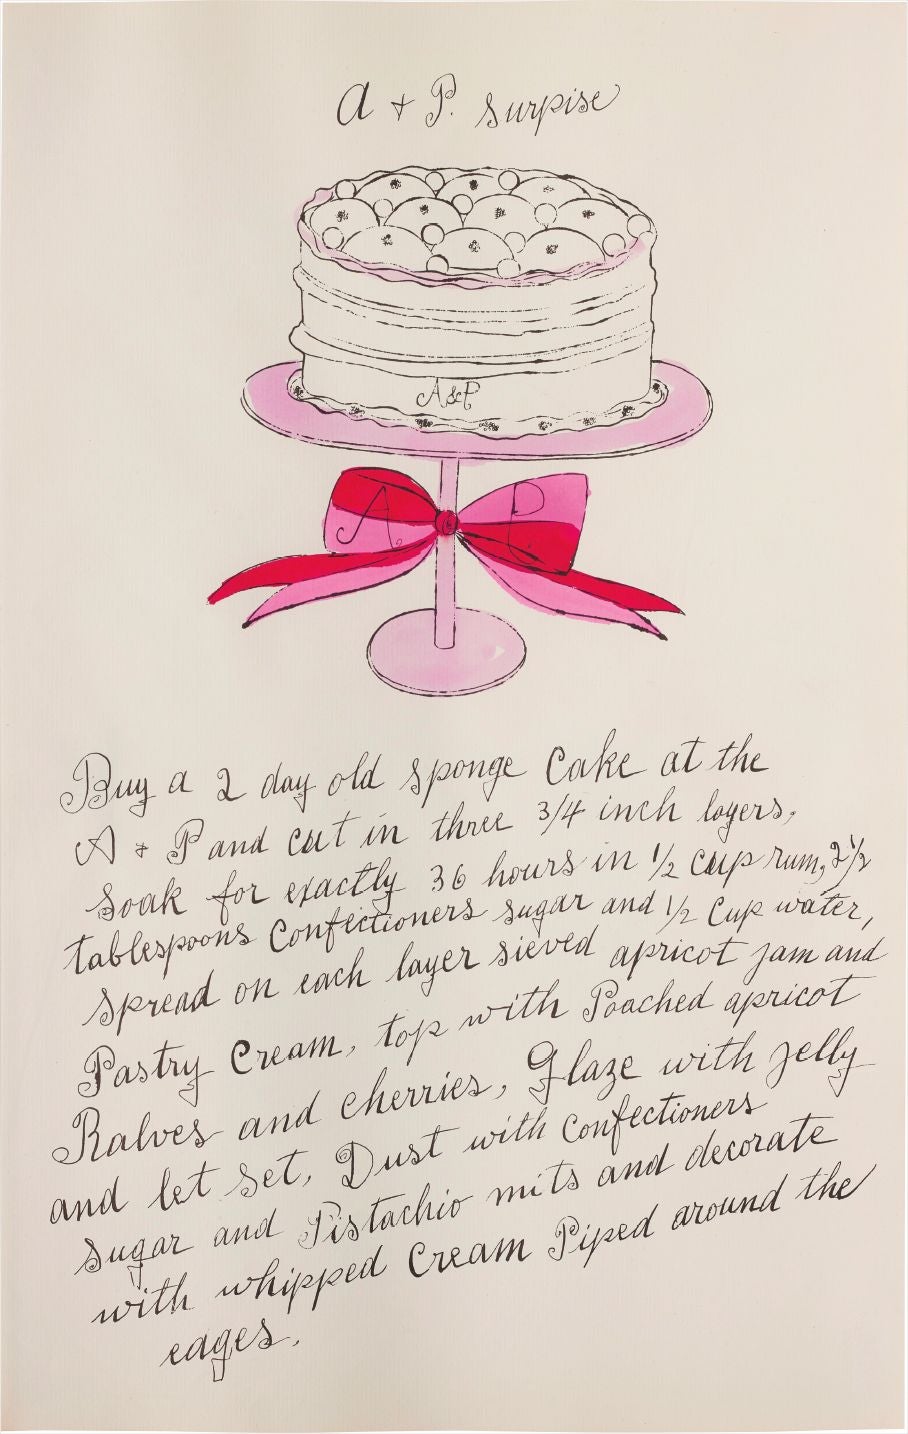 A + P. surpise
A&P
A P
Buy a 2 day old sponge Cake at the
A + P and cut in three 3/4 inch layers,
Soak for exactly 36 hours in 1/2 cup rum, 2 1/2
tablespoons Confectioners sugar and 1/2 Cup water,
Spread on each layer sieved apricot jam and
Pastry Cream, top with Poached apricot
Halves and cherries, Glaze with jelly
and let set, Dust with confectioners
sugar and Pistachio nuts and decorate
with whipped Cream Piped around the
edges.